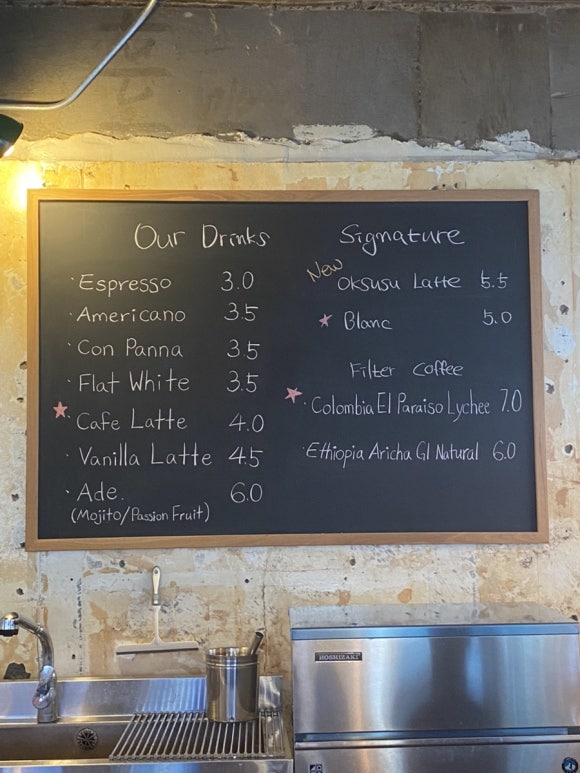 Our Drinks
· Espresso 3.0
· Americano 3.5
· Con Panna 3.5
· Flat White 3.5
· Cafe Latte 4.0
· Vanilla Latte 4.5
· Ade. 6.0
(Mojito/Passion Fruit)
Signature
New
Oksusu Latte 5.5
Blanc 5.0
Filter Coffee
· Colombia El Paraiso Lychee 7.0
· Ethiopia Aricha G1 Natural 6.0
HOSHIZAKI